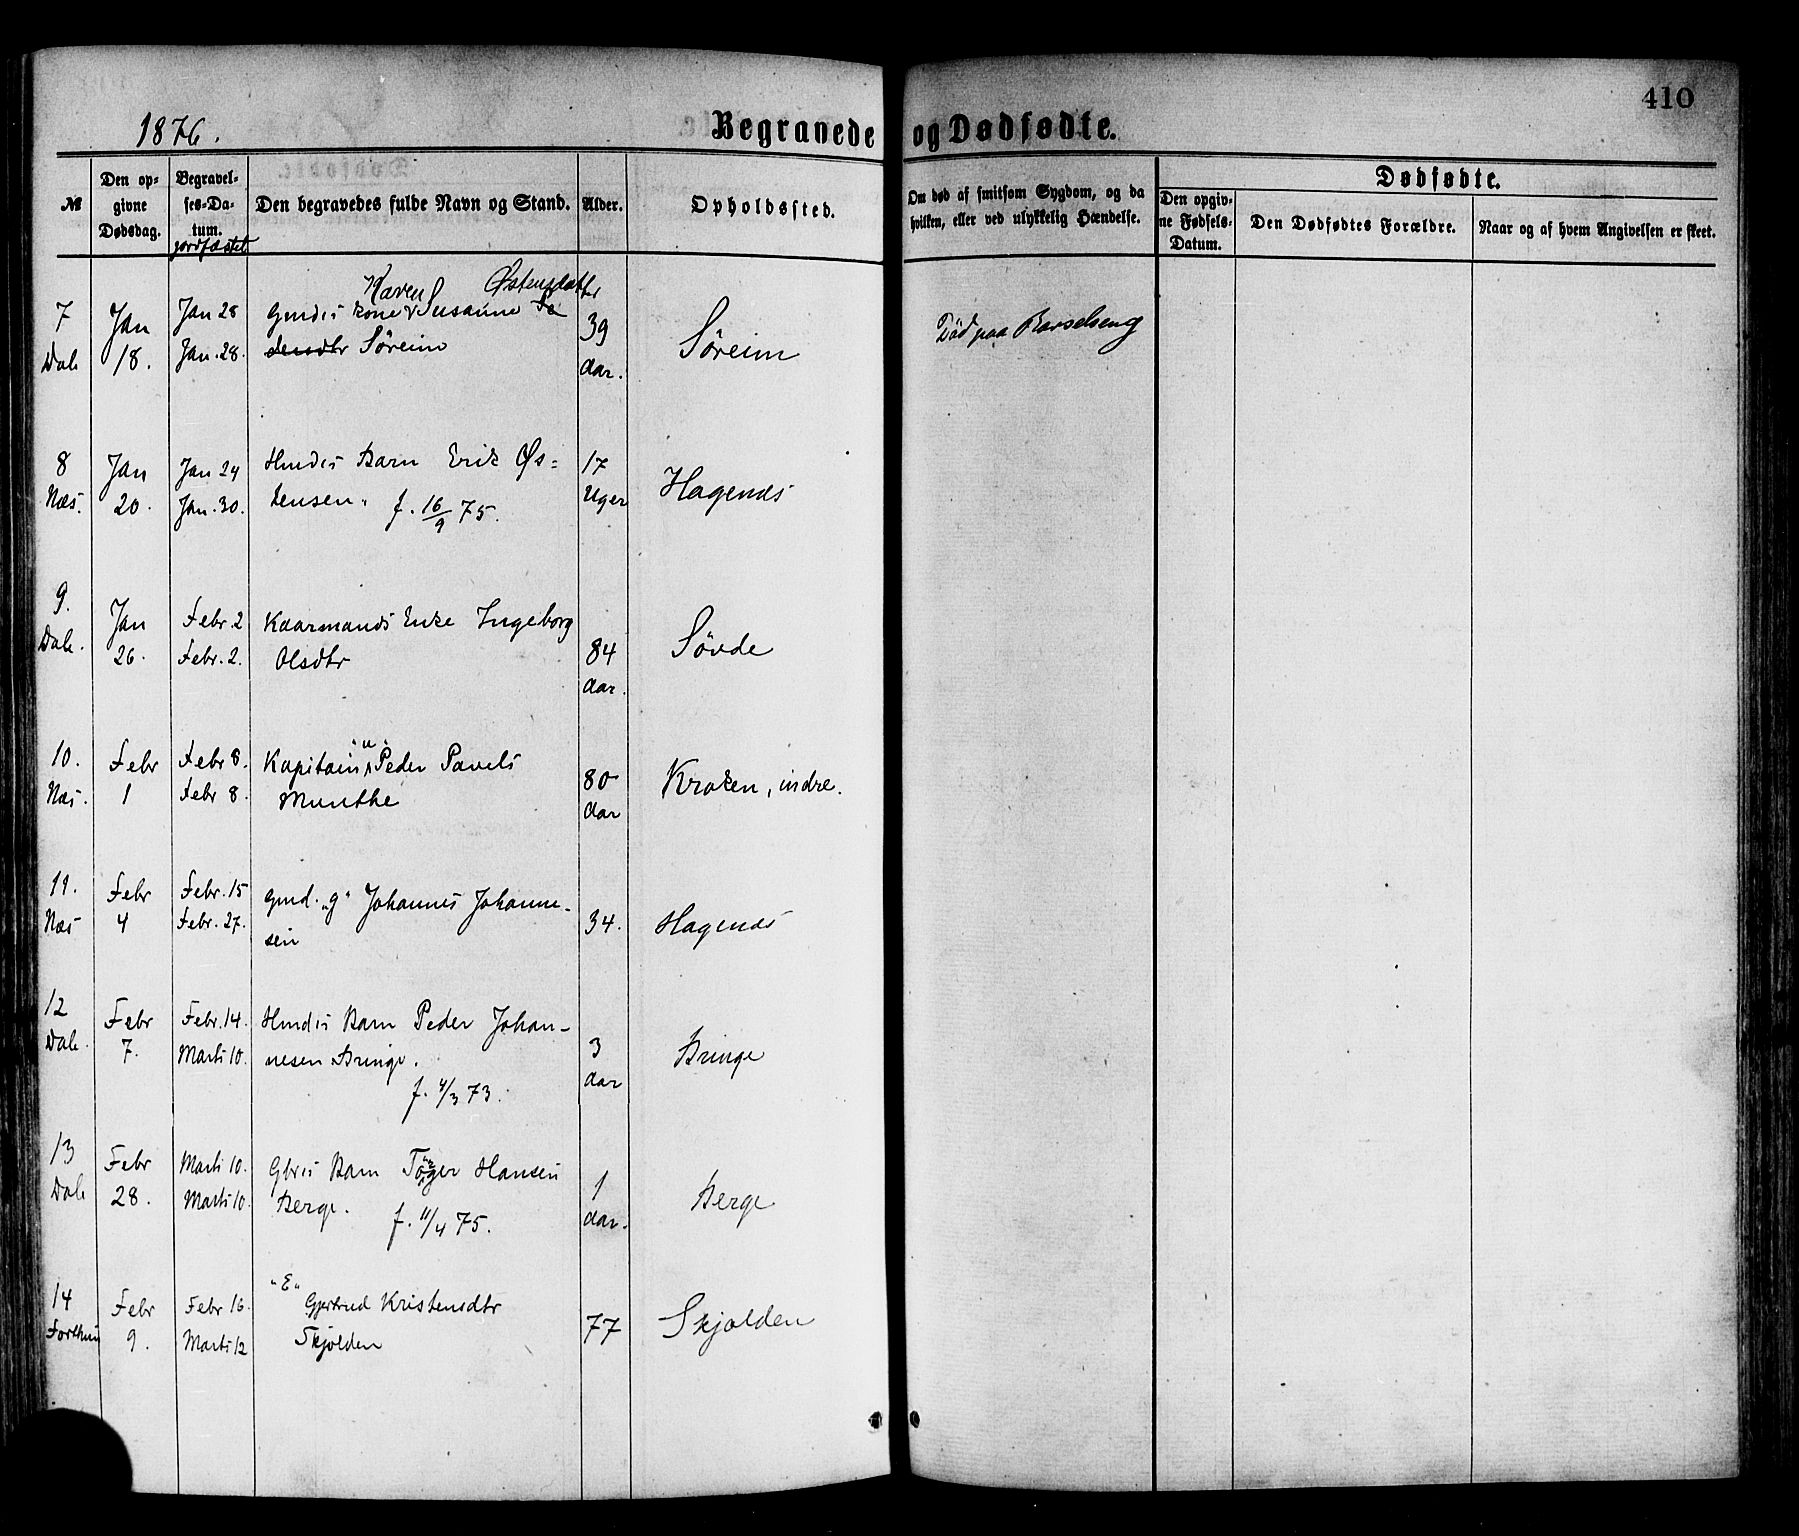 410
1876.
Begravede og Dødfødte.
№
Den opgivne Dødsdag.
Begravelses-Datum.
jordfæstet
Den begravedes fulde Navn og Stand.
Alder.
Opholdssted.
Om død af smitsom Sygdom, og da hvilken, eller ved ulykkelig Hændelse.
Dødfødte.
Den opgivne Fødsels-Datum.
Den Dødfødtes Forældre.
Naar og af hvem Angivelsen er skeet.
7 Dale
Jan 18.
Jan 28
Jan. 28.
Karen Østensdatter
Gmds kone Susanne
Søreim
39 Aar.
Søreim
Død paa Barselseng
8 Næs.
Jan 20.
Jan 24
Jan. 30.
Hmds Barn Erik Øs=
tensen. f. 16/9 75.
17 Uger
Hagenæs
9. Dale.
Jan 26.
Febr. 2
Febr. 2.
Kaarmands Enke Ingeborg
Olsdtr
84 Aar.
Søvde
10. Næs.
Febr 1
Febr 8.
Febr 8.
"u"
Kapitain Peder Pavels
Munthe
80 Aar
Kroken, indre.
11. Næs
Febr 4
Febr. 15
Febr. 27.
Gmd. "g" Johannes Johanne-
sen
34.
Hagenæs
12 Dale.
Febr 7.
Febr. 14.
Marts 10.
Hmds Barn Peder Johan-
nesen Bringe.
f. 4/3 73.
3 Aar
Bringe
13 Dale
Febr 28.
Marts 10.
Marts 10.
Gbrs Barn Tøger Hansen
Berge.
f. 11/4 75.
1 Aar.
Berge
14 Forthun
Febr 9.
Febr 16.
Marts 12
"E"
Gjertrud Kristensdtr
Skjolden
77
Skjolden